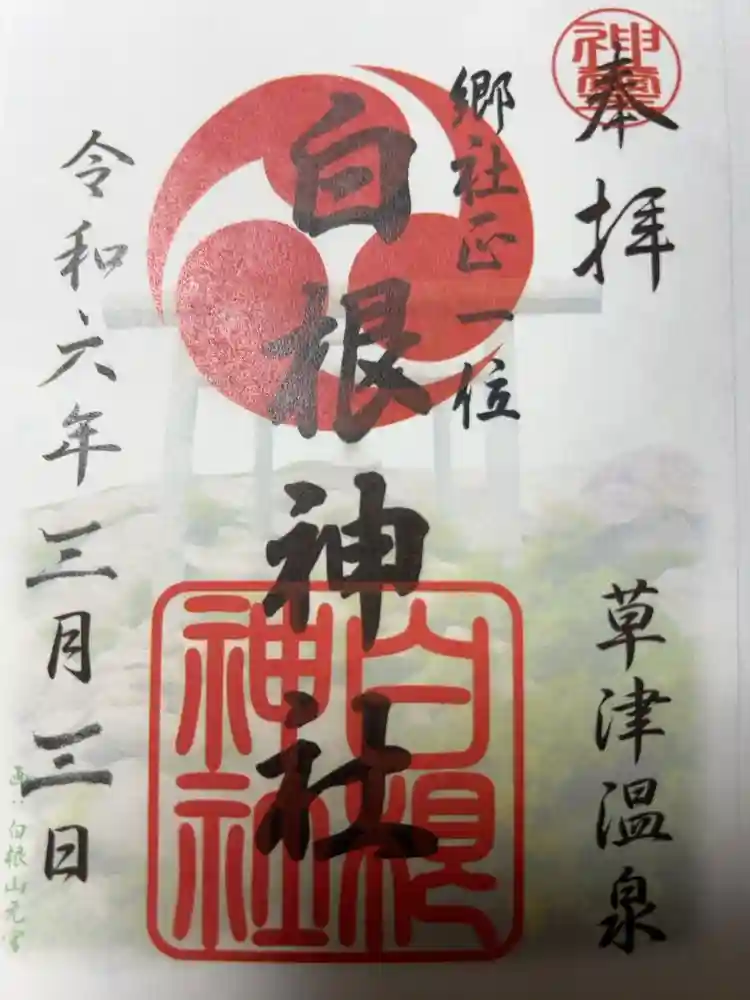 奉拝
草津温泉
郷社正一位
白根神社
白根
神社
令和六年三月三日
画:白根山元宮